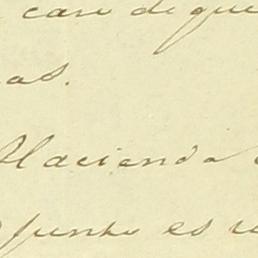 case de que
as.
Hacienda
punto es